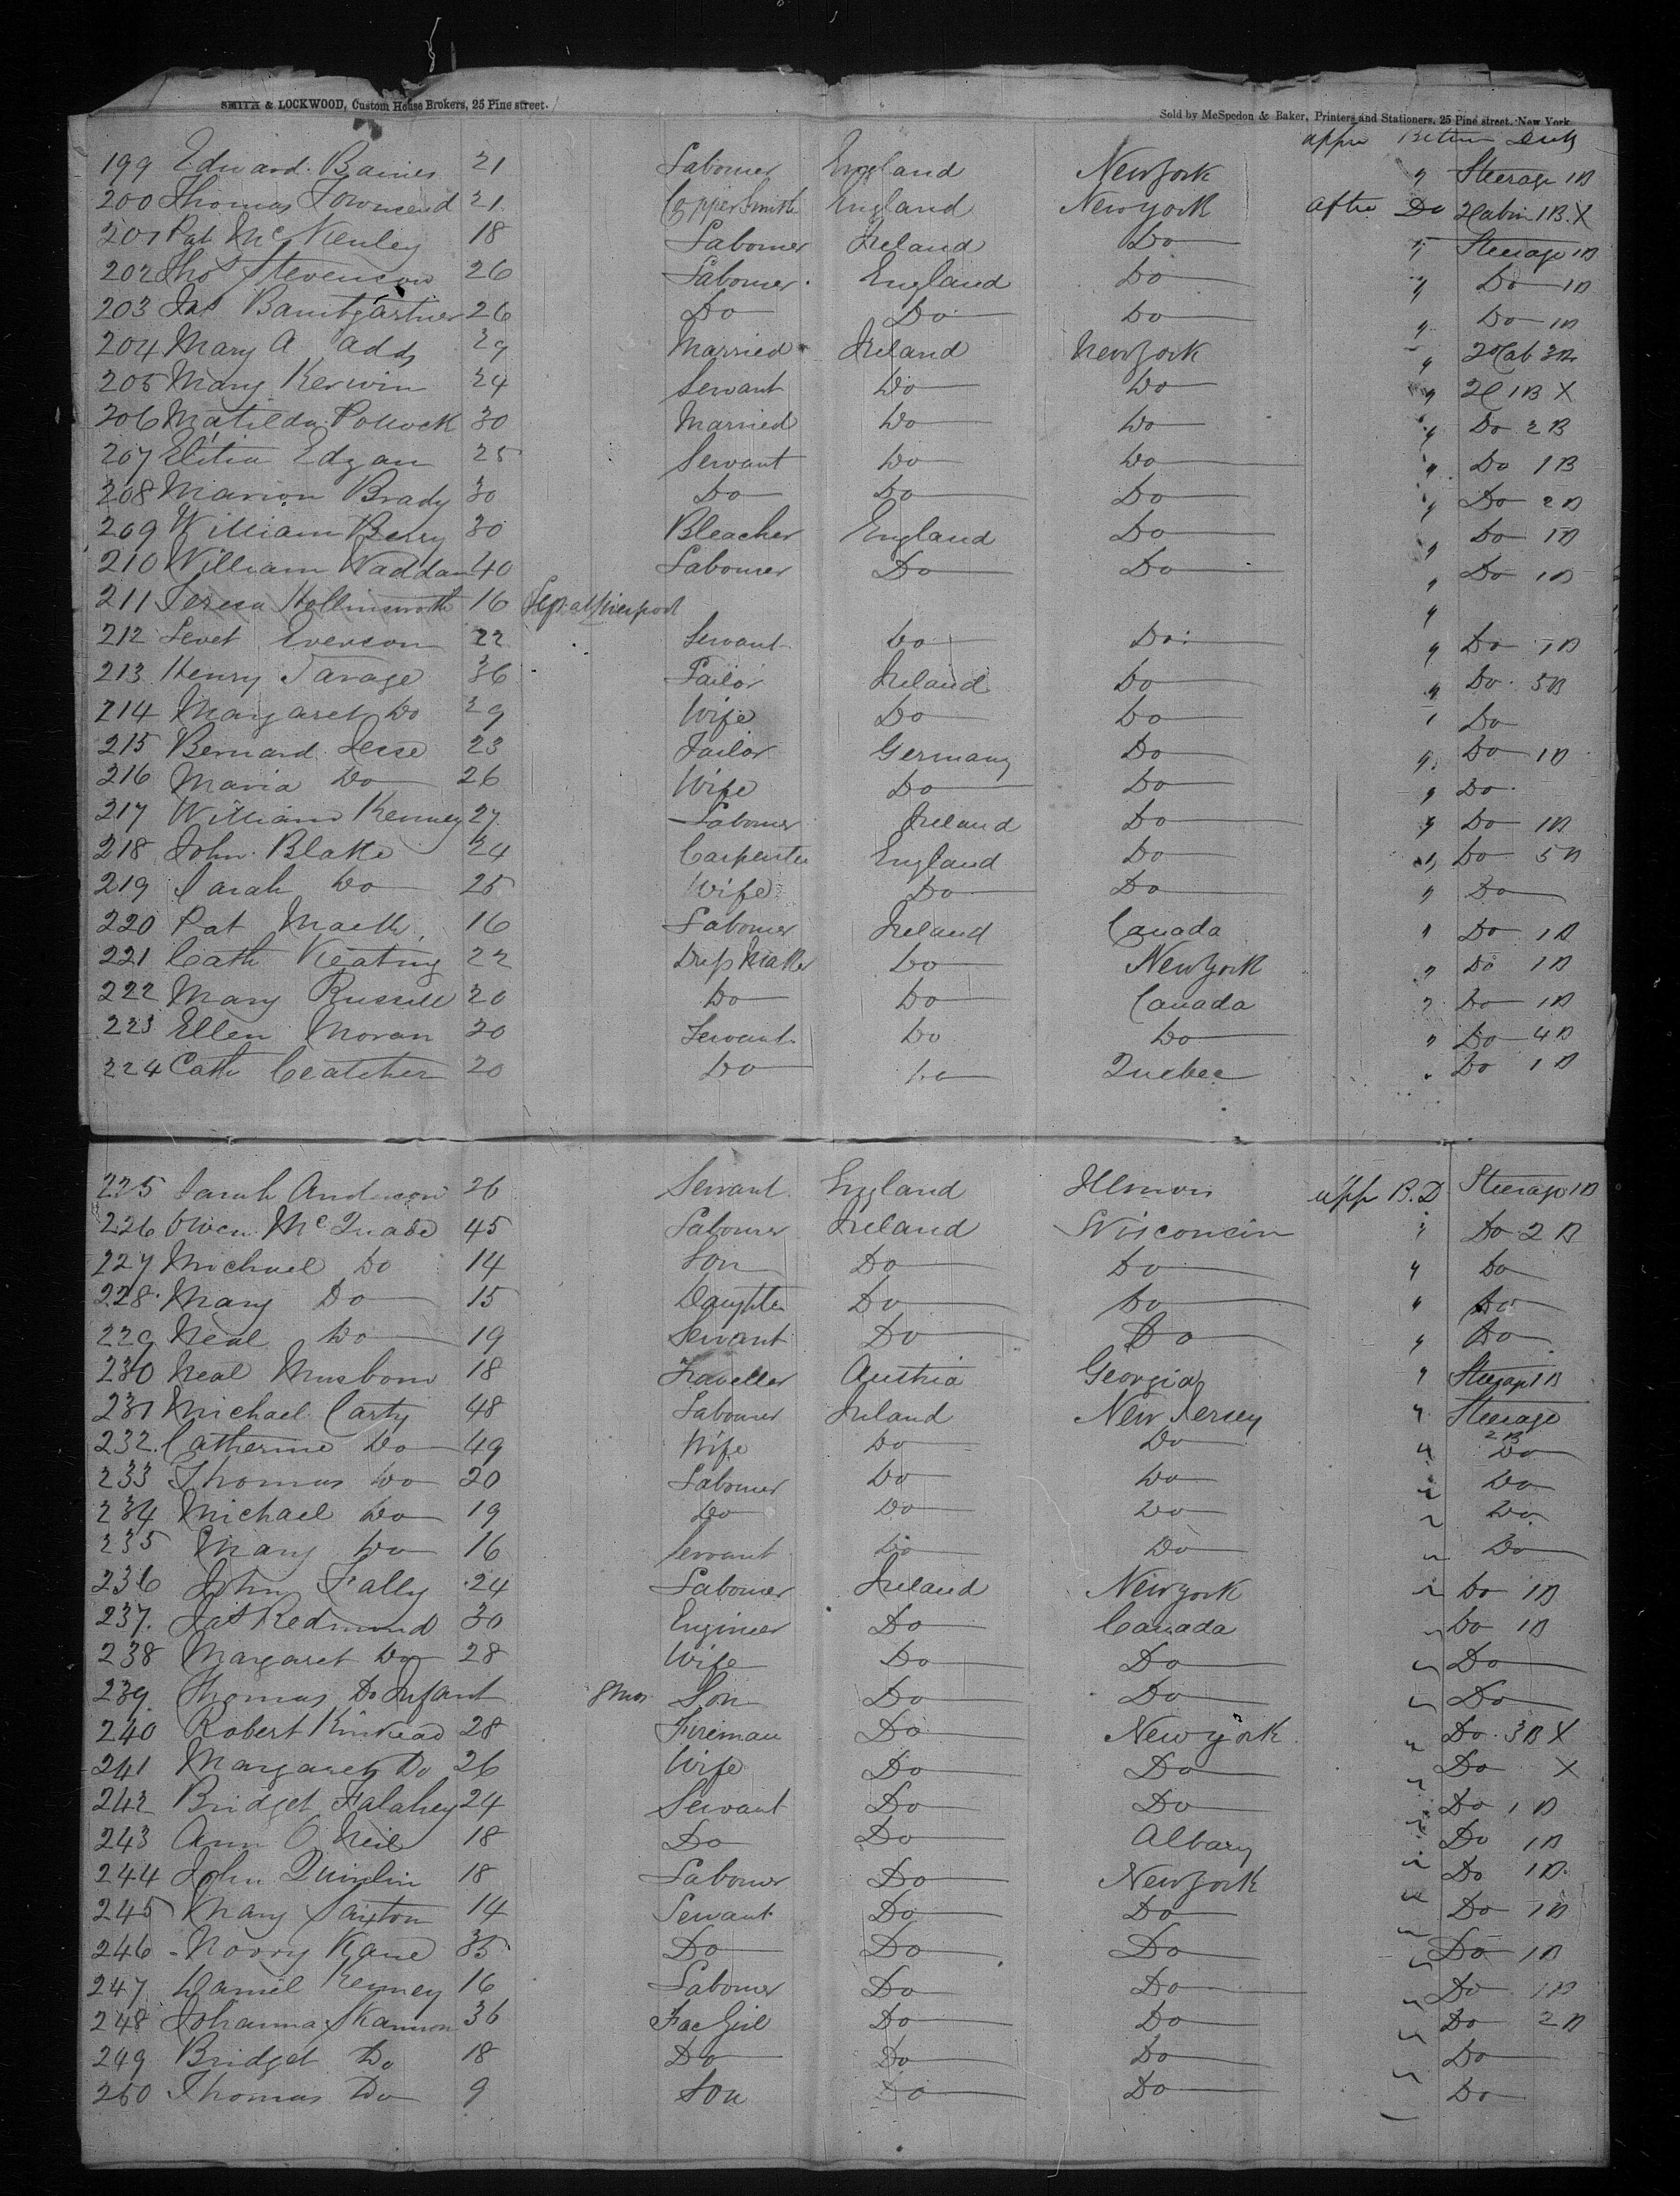 SMITH & LOCKWOOD, Custom House Brokers, 25 Pine street.
Sold by McSpedon & Baker, Printers and Stationers, 25 Pine street, New York.
199 Edward Baines 21 Labourer England New York " Steerage 1B
200 Thomas Townsend 21 Copper Smith England New York after Do 2 Cabin 1B. X
201 Pat McKenley 18 Labourer Ireland Do " Steerage 1B
202 Thos Stevenson 26 Labourer England Do " Do 1B
203 Jas Baumgartner 26 Do Do Do " Do 1B
204 Mary A 29 Married Ireland New York " 2 Cab 3B
205 Mary Kerwin 24 Servant Do Do " 2C 1B X
206 Matilda Pollock 30 Married Do Do " Do 2B
207 Elitia Edgan 25 Servant Do Do " Do 1B
208 Marion Brady 30 Do Do Do " Do 2B
209 William Berry 30 Bleacher England Do " Do 1B
210 William Waddan 40 Labourer Do Do " Do 1B
211 Teresa Hollinsworth 16 Left at Liverpool "
212 Levet Everson 22 Servant Do Do " Do 1B
213 Henry Savage 36 Tailor Ireland Do " Do 5B
214 Margaret Do 29 Wife Do Do " Do
215 Bernard Jesse 23 Tailor Germany Do " Do 1B
216 Maria Do 26 Wife Do Do " Do
217 William Kenney 27 Labourer Ireland Do " Do 1B
218 John Blake 24 Carpenter England Do " Do 5B
219 Sarah Do 25 Wife Do Do " Do
220 Pat 16 Labourer Ireland Canada " Do 1B
221 Cath Keating 22 Dress Maker Do New York " Do 1B
222 Mary Russell 20 Do Do Canada " Do 1B
223 Ellen Moran 20 Servant Do Do " Do 4B
224 Cath Ceatcher 20 Do Do Quebec " Do 1B
225 Sarah Anderson 26 Servant England Illinois app B.D Steerage 1B
226 Owen McQuade 45 Labourer Ireland Wisconsin " Do 2B
227 Michael Do 14 Son Do Do " Do
228 Mary Do 15 Daughter Do Do " Do
229 Neal Do 19 Servant Do Do " Do
230 Neal Musbom 18 Traveller Austria Georgia " Steerage 1B
231 Michael Carty 48 Labourer Ireland New Jersey " Steerage 2B
232 Catherine Do 49 Wife Do Do " Do
233 Thomas Do 20 Labourer Do Do " Do
234 Michael Do 19 Do Do Do " Do
235 Mary Do 16 Servant Do Do " Do
236 John Fally 24 Labourer Ireland New York " Do 1B
237 Jas Redmond 30 Engineer Do Canada " Do 1B
238 Margaret Do 28 Wife Do Do " Do
239 Thomas Do Infant 8 mos Son Do Do " Do
240 Robert Kinkead 28 Fireman Do New York " Do 3B X
241 Margaret Do 26 Wife Do Do " Do X
242 Bridget Falahey 24 Servant Do Do " Do 1B
243 Ann O Neil 18 Do Do Albany " Do 1B
244 John Quinlin 18 Labourer Do New York " Do 1B
245 Mary Saxton 14 Servant Do Do " Do 1B
246 Norry Kane 35 Do Do Do " Do 1B
247 Daniel Kenney 16 Labourer Do Do " Do 1B
248 Johanna Skannon 36 Fac Girl Do Do " Do 2B
249 Bridget Do 18 Do Do Do " Do
250 Thomas Do 9 Son Do Do Do